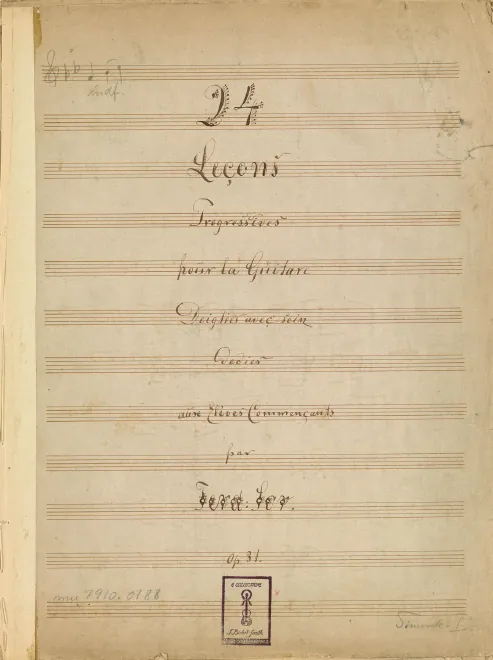 24
Leçons
Progressives
pour la Guitare
Doigties avec soin
Dedies
aux Elèves Commençants
par
Ferd: Sor.
Op 31.
mu 7910.0188